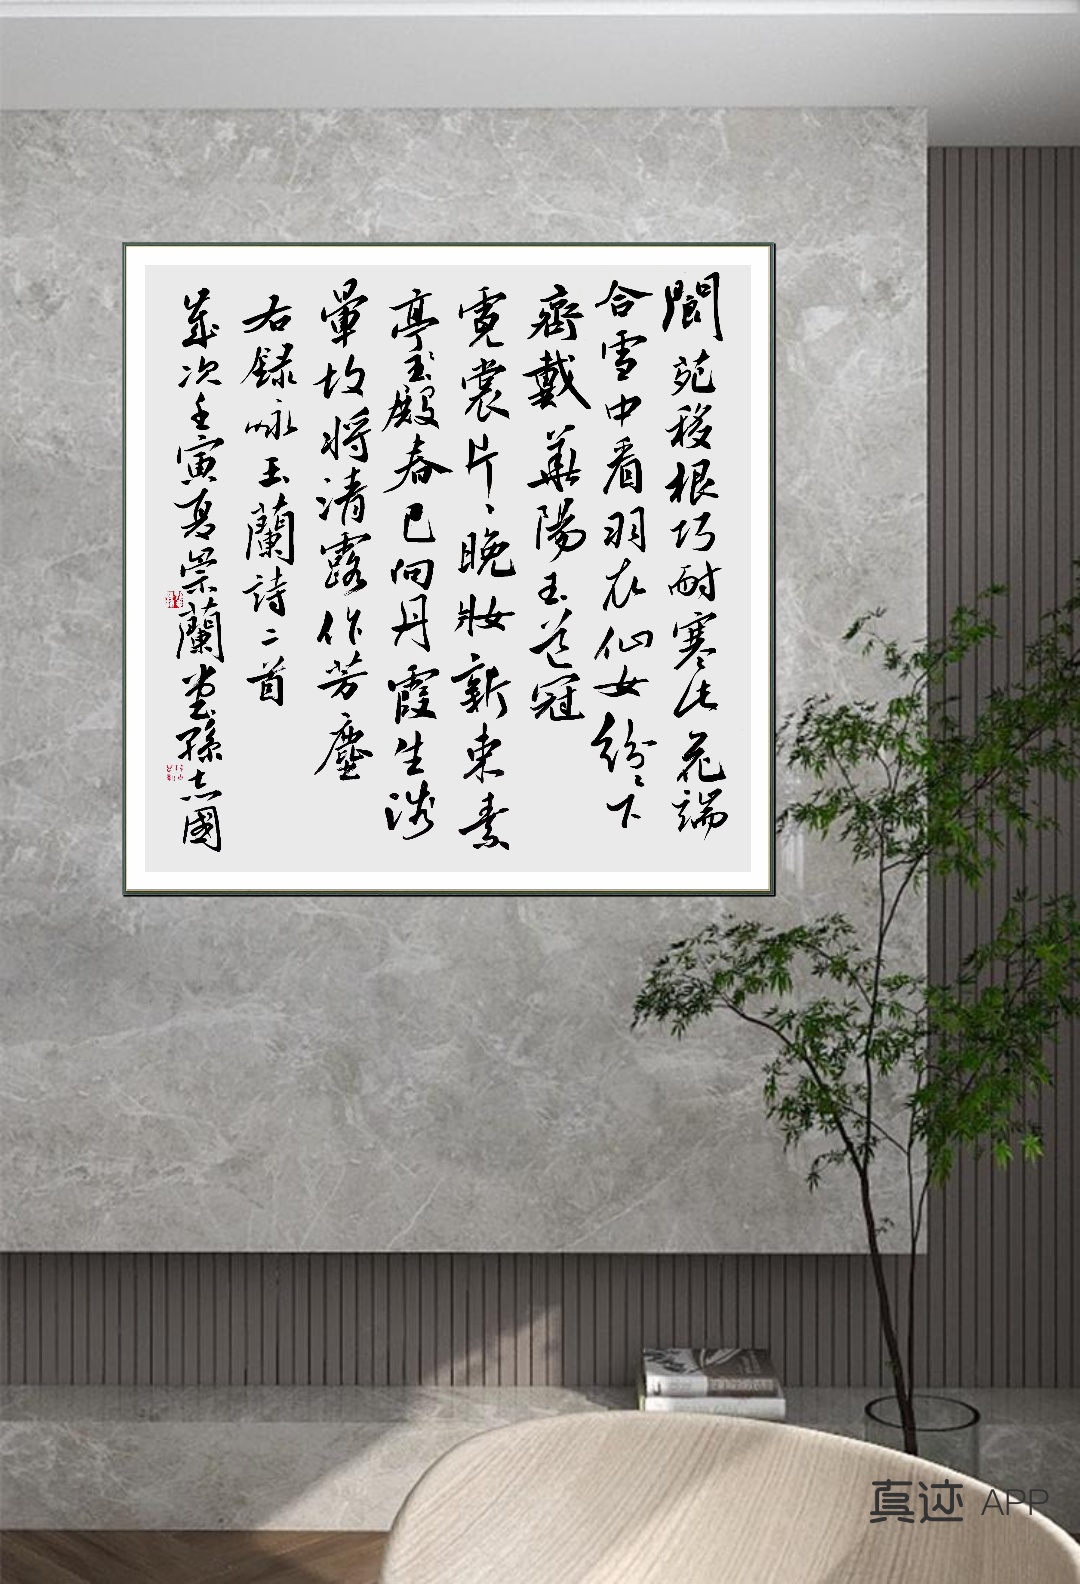 閬苑移根巧耐寒此花端
合雪中看羽衣仙女紛〻下
齊戴華陽玉道冠
霓裳片〻晚妝新束素
亭〻玉殿春已向丹霞生淺
暈故將清露作芳塵
右録咏玉蘭詩二首
歲次壬寅夏崇蘭堂孫志國
真迹 APP